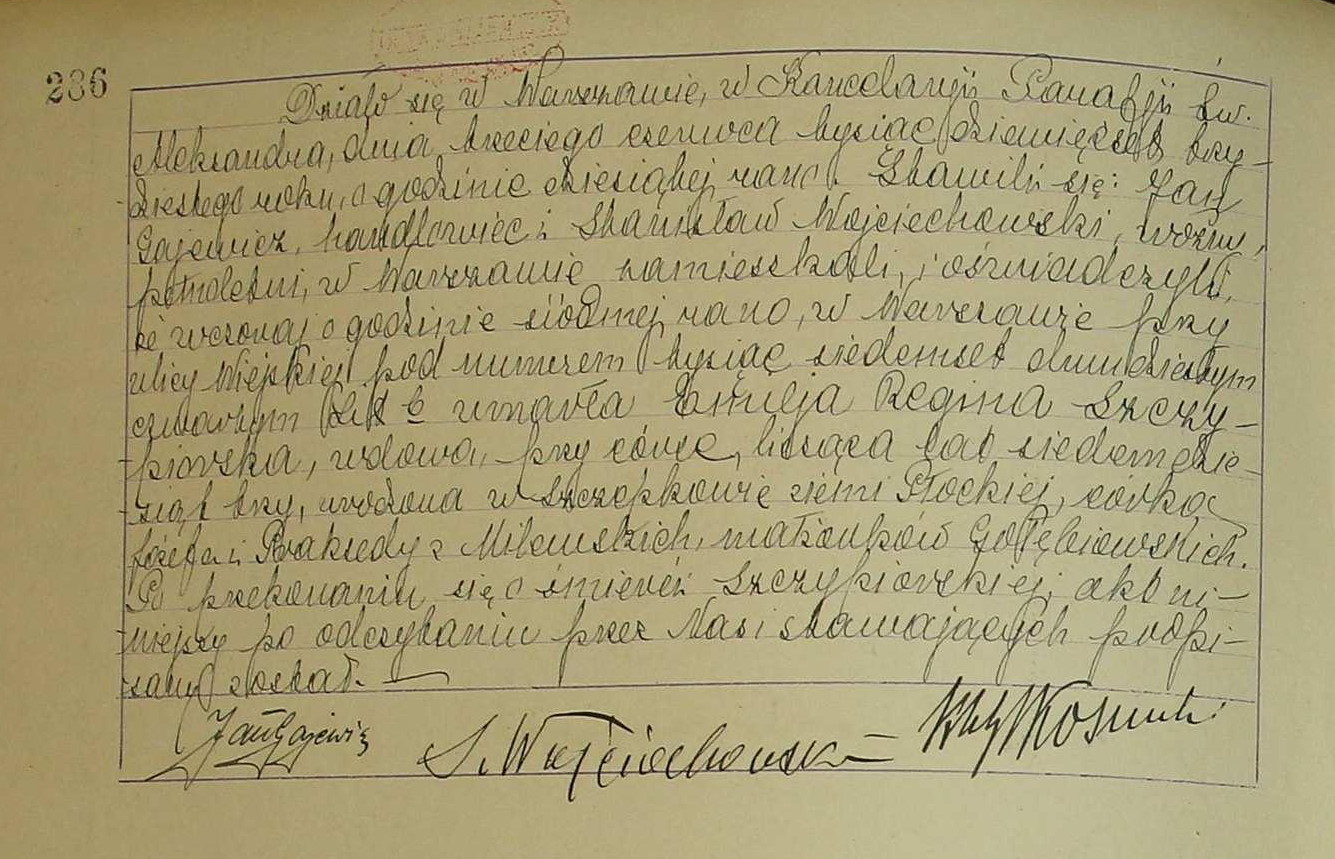 286
Działo się w Warszawie, w Kancelarji Parafji Św.
Aleksandra, dnia trzeciego czerwca tysiąc dziewięćset trzy-
dziestego roku, o godzinie dziesiątej rano. Stawili się: Jan
Gajewicz, handlowiec i Stanisław Wojciechowski, woźny,
pełnoletni, w Warszawie zamieszkali, i oświadczyli,
że wczoraj o godzinie siódmej rano, w Warszawie przy
ulicy Wiejskiej pod numerem tysiąc siedemset dwudziestym
czwartym umarła Emilja Regina Szczy-
piorska, wdowa, przy córce, licząca lat siedemdzie-
siąt trzy, urodzona w Szczepkowie ziemi Płockiej, córka
Józefa i Praksedy z Milewskich, małżonków Gołębiowskich.
Po przekonaniu się o śmierci Szczypiorskiej, akt ni-
niejszy po odczytaniu przez Nas i stawających podpi-
sany został.
Jan Gajewicz S. Wojciechowski